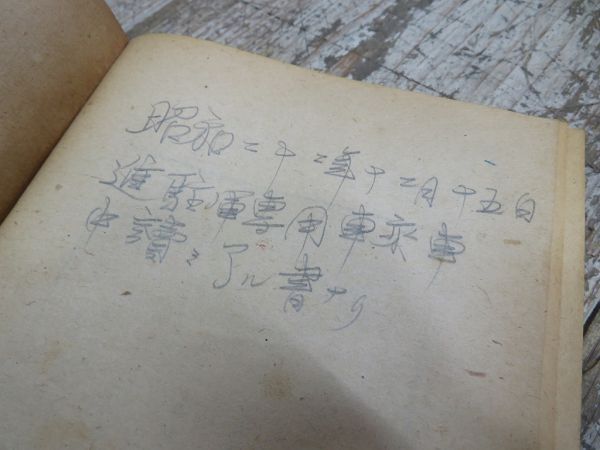 昭和二十二年十二月十五日
進駐軍専用車乗車
中讀ミアル書ナリ